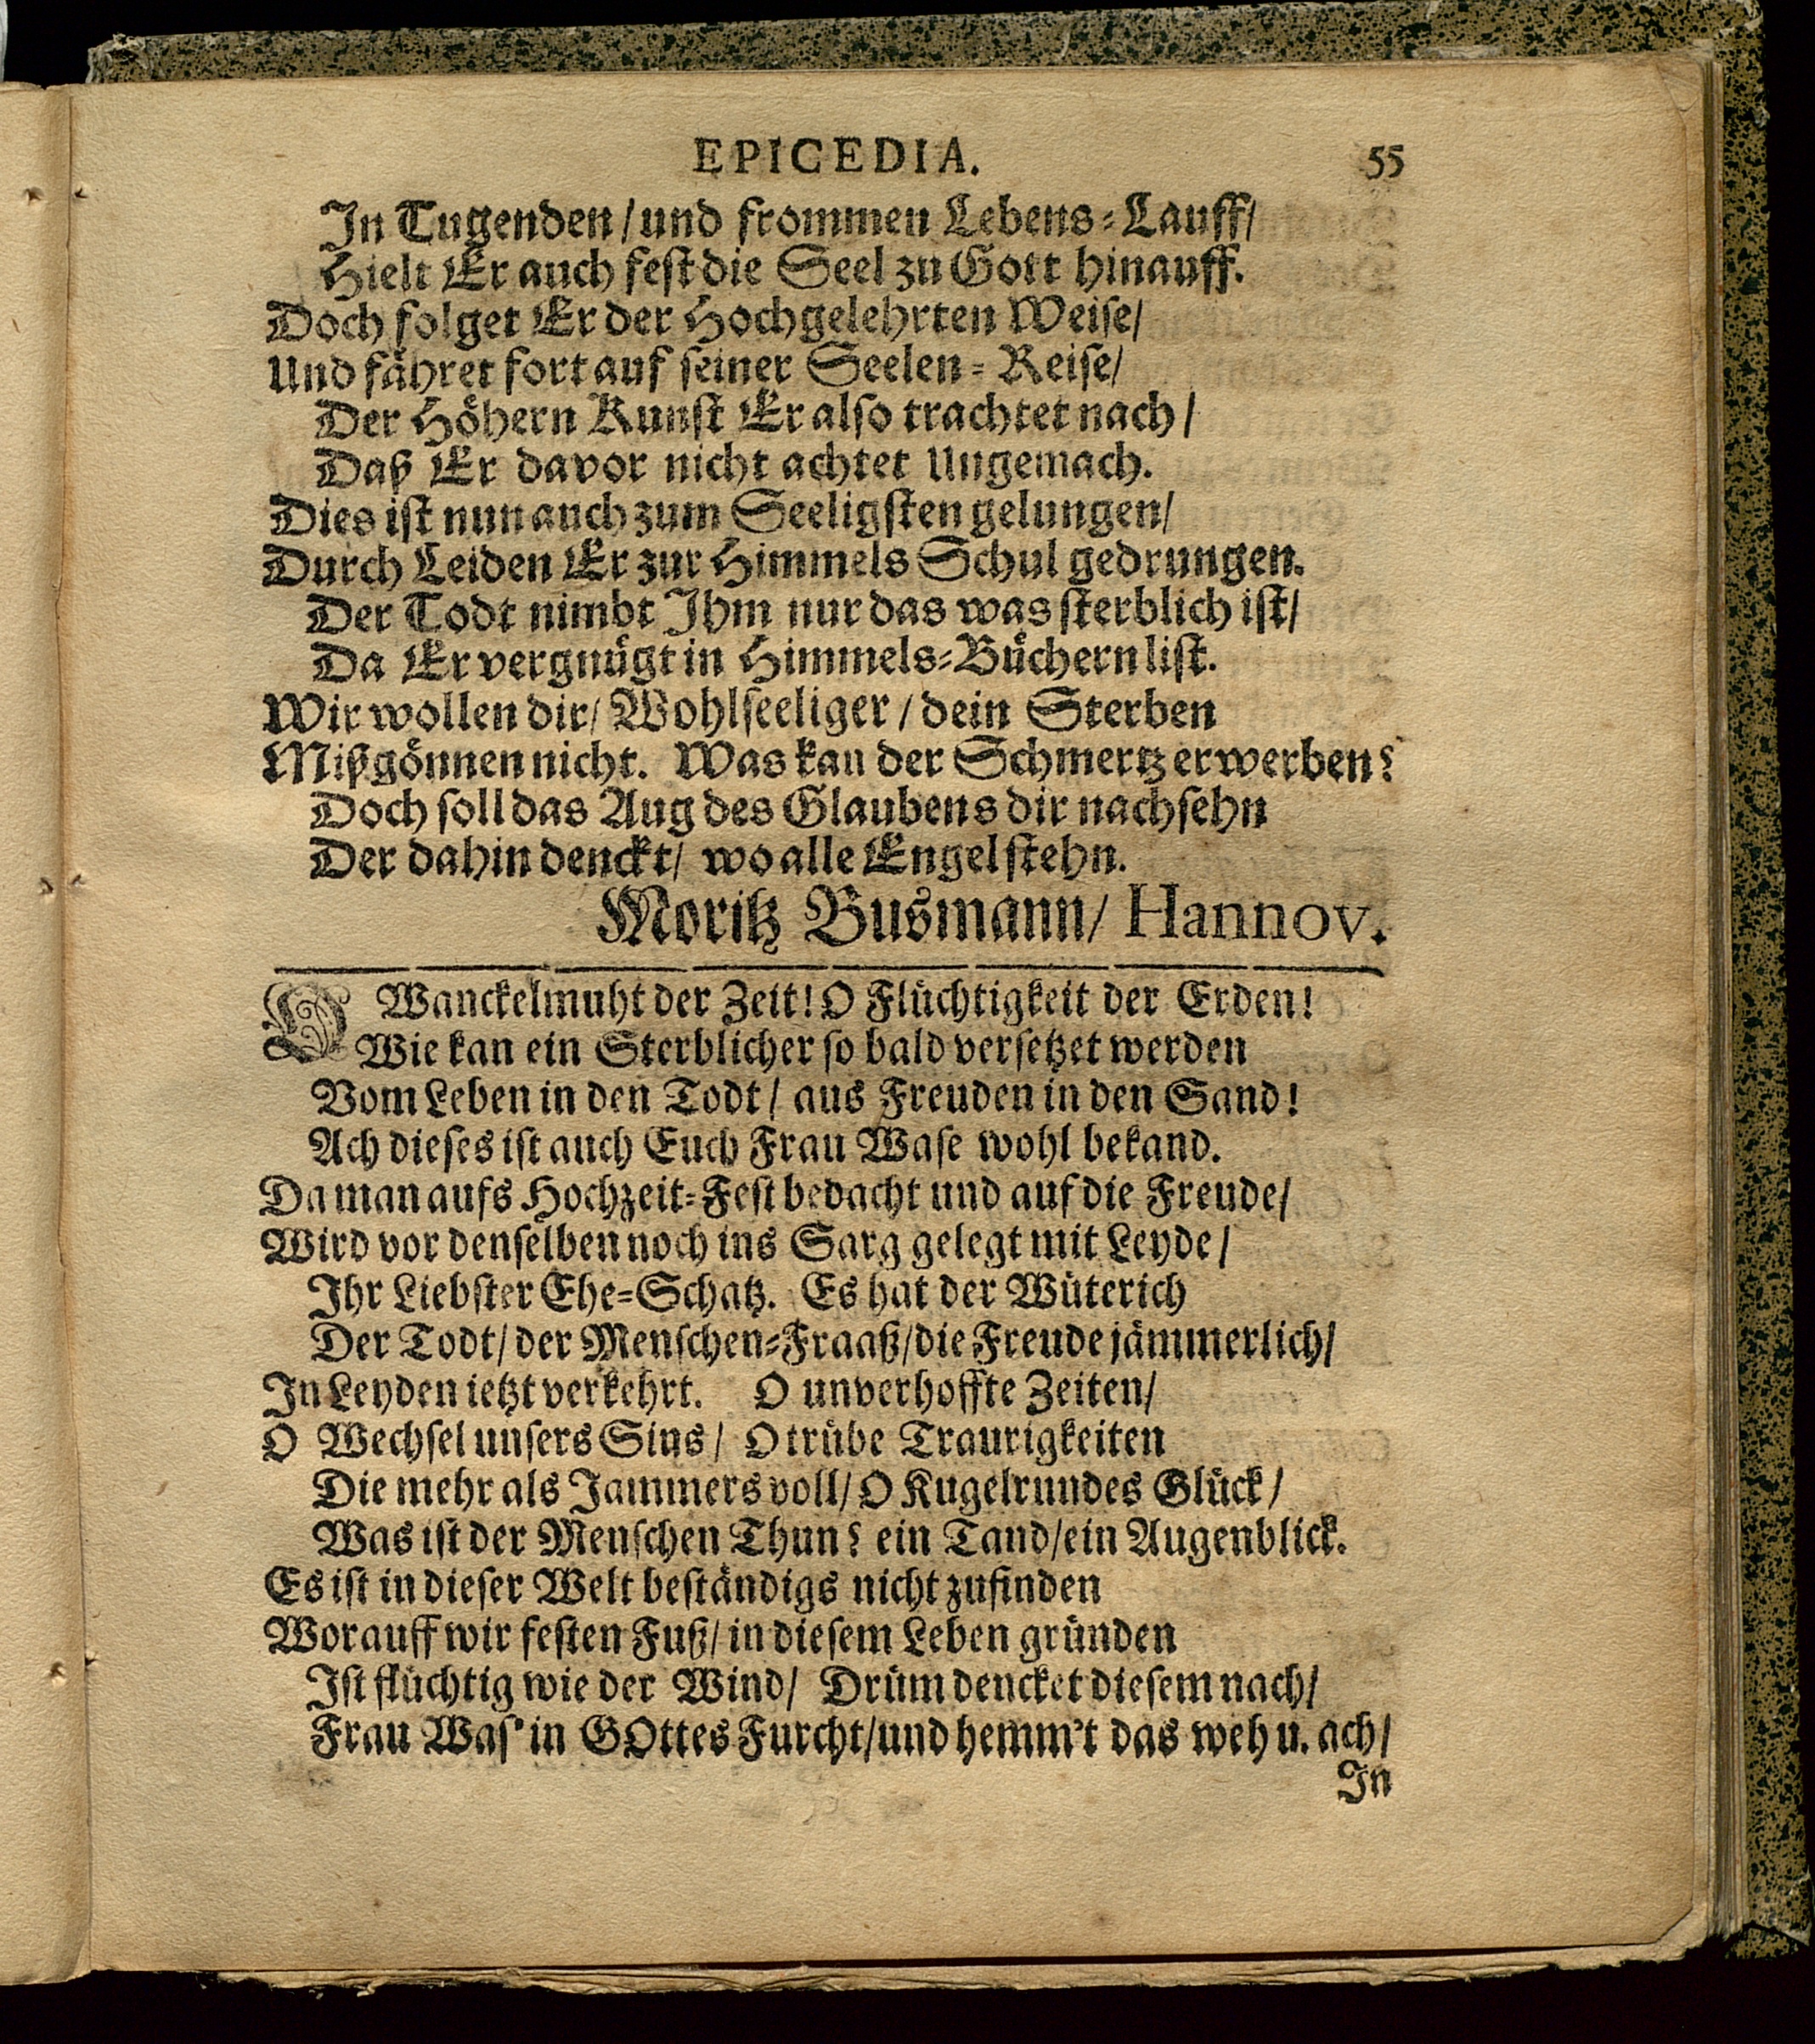 EPICEDIA. 55
In Tugenden / und frommen Lebens-Lauff /
Hielt Er auch fest die Seel zu Gott hinauff.
Doch folget Er der Hochgelehrten Weise /
Und fähret fort auf seiner Seelen-Reise /
Der Höhern Kunst Er also trachtet nach /
Daß Er davor nicht achtet Ungemach.
Dies ist nun auch zum Seeligsten gelungen /
Durch Leiden Er zur Himmels Schul gedrungen.
Der Todt nimbt Ihm nur das was sterblich ist /
Da Er vergnügt in Himmels-Büchern list.
Wir wollen dir / Wohlseeliger / dein Sterben
Mißgönnen nicht. Was kan der Schmertz erwerben?
Doch soll das Aug des Glaubens dir nachsehn
Der dahin denckt / wo alle Engel stehn.
Moritz Busmann / Hannov.
O Wanckelmuht der Zeit! O Flüchtigkeit der Erden!
Wie kan ein Sterblicher so bald versetzet werden
Vom Leben in den Todt / aus Freuden in den Sand!
Ach dieses ist auch Euch Frau Wase wohl bekand.
Da man aufs Hochzeit-Fest bedacht und auf die Freude /
Wird vor denselben noch ins Sarg gelegt mit Leyde /
Ihr Liebster Ehe-Schatz. Es hat der Wüterich
Der Todt / der Menschen-Fraaß / die Freude jämmerlich /
In Leyden ietzt verkehrt. O unverhoffte Zeiten /
O Wechsel unsers Sins / O trübe Traurigkeiten
Die mehr als Jammers voll / O Kugelrundes Glück /
Was ist der Menschen Thun? ein Tand / ein Augenblick.
Es ist in dieser Welt beständigs nicht zufinden
Worauff wir festen Fuß / in diesem Leben gründen
Ist flüchtig wie der Wind / Drüm dencket diesem nach /
Frau Was' in GOttes Furcht / und hemm't das weh u. ach /
In